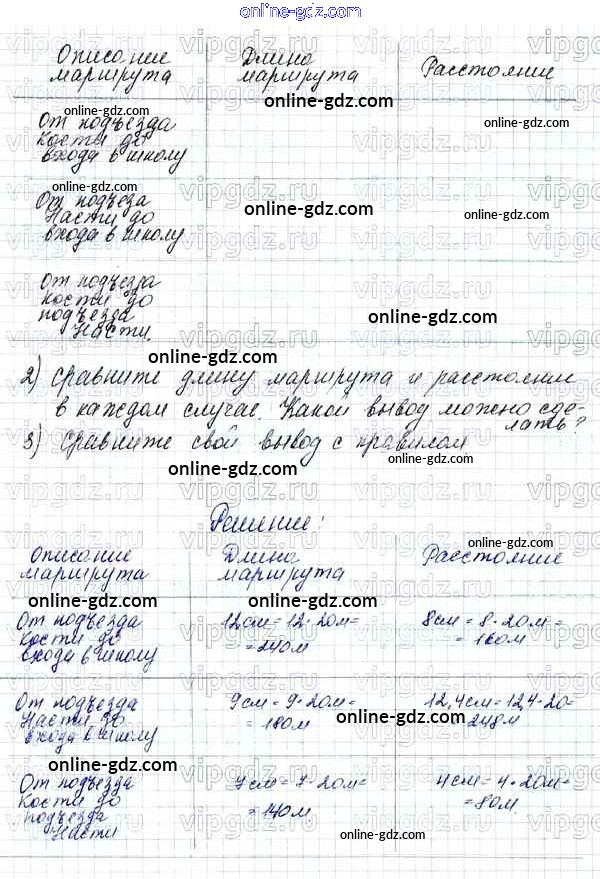 online-gdz.com
Описание маршрута
Длина маршрута
Расстояние
online-gdz.com
online-gdz.com
От подъезда Кости до входа в школу
online-gdz.com
online-gdz.com
От подъеза Насти до входа в школу
online-gdz.com
online-gdz.com
От подъезда Кости до подъезда Насти.
online-gdz.com
online-gdz.com
2) Сравните длину маршрута и расстояни
в каждом случае. Какой вывод можно сде-
лать?
3) Сравните свой вывод с правилом
online-gdz.com
online-gdz.com
Решение:
online-gdz.com
Описание маршрута
Длина маршрута
Расстояние
online-gdz.com
online-gdz.com
online-gdz.com
От подъезда Кости до входа в школу
12см = 12·20м= =240м
8см = 8·20м= = 160м
От подъезда Насти до входа в школу
9см = 9·20м= = 180м
12,4см=12,4·20= 248м
online-gdz.com
online-gdz.com
От подъезда Кости до подъезда Насти
7см = 7·20м= =140м.
4см = 4·20м= =80м.
online-gdz.com
online-gdz.com
vipgdz.ru